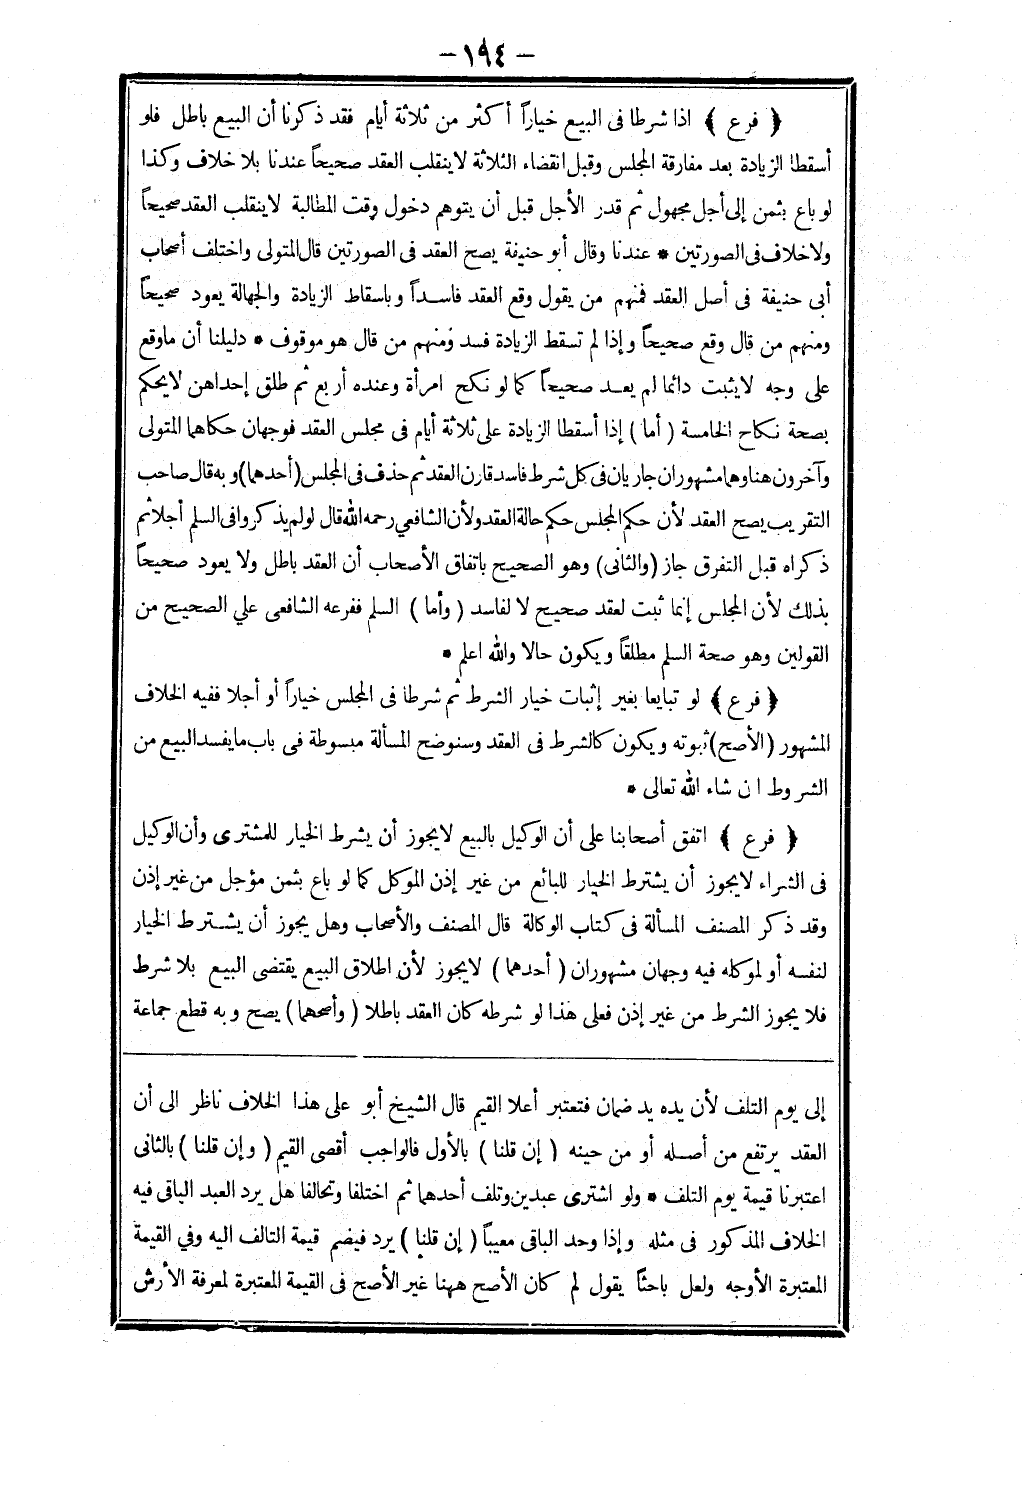 — ١٩٤ —
﴿ فرع ﴾ اذا شرطا فى البيع خياراً أكثر من ثلاثة أيام فقد ذكرنا أن البيع باطل فلو
أسقطا الزيادة بعد مفارقة المجلس وقبل انقضاء الثلاثة لاينقلب العقد صحيحاً عندنا بلا خلاف وكذا
لو باع بثمن إلى أجل مجهول ثم قدر الأجل قبل أن يتوهم دخول وقت المطالبة لاينقلب العقد صحيحاً
ولاخلاف فى الصورتين * عندنا وقال أبو حنيفة يصح العقد فى الصورتين قال المتولى واختلف أصحاب
أبى حنيفة فى أصل العقد فمنهم من يقول وقع العقد فاسداً وباسقاط الزيادة والجهالة يعود صحيحاً
ومنهم من قال وقع صحيحاً وإذا لم تسقط الزيادة فسد ومنهم من قال هو موقوف * دليلنا أن ماوقع
على وجه لايثبت دائما لم يعد صحيحاً كما لو نكح امرأة وعنده أربع ثم طلق إحداهن لايحكم
بصحة نكاح الخامسة ( أما ) إذا أسقطا الزيادة على ثلاثة أيام فى مجلس العقد فوجهان حكاهما المتولى
وآخرون هنا وهما مشهوران جاريان فى كل شرط فاسد قارن العقد ثم حذف فى المجلس (أحدهما) وبه قال صاحب
التقريب يصح العقد لأن حكم المجلس حكم حالة العقد ولأن الشافعى رحمه الله قال لو لم يذكروا فى السلم أجلا ثم
ذكراه قبل التفرق جاز (والثانى) وهو الصحيح باتفاق الأصحاب أن العقد باطل ولا يعود صحيحاً
بذلك لأن المجلس إنما ثبت لعقد صحيح لا لفاسد ( وأما ) السلم ففرعه الشافعى علي الصحيح من
القولين وهو صحة السلم مطلقاً ويكون حالا والله اعلم *
﴿ فرع ﴾ لو تبايعا بغير إثبات خيار الشرط ثم شرطا فى المجلس خياراً أو أجلا ففيه الخلاف
المشهور ( الأصح ) ثبوته ويكون كالشرط فى العقد وسنوضح المسألة مبسوطة فى باب مايفسد البيع من
الشروط ان شاء الله تعالى *
﴿ فرع ﴾ اتفق أصحابنا على أن الوكيل بالبيع لايجوز أن يشرط الخيار للمشترى وأن الوكيل
فى الشراء لايجوز أن يشترط الخيار للبائع من غير إذن الموكل كما لو باع بثمن مؤجل من غير إذن
وقد ذكر المصنف المسألة فى كتاب الوكالة قال المصنف والأصحاب وهل يجوز أن يشترط الخيار
لنفسه أو لموكله فيه وجهان مشهوران ( أحدهما ) لايجوز لأن اطلاق البيع يقتضى البيع بلا شرط
فلا يجوز الشرط من غير إذن فعلى هذا لو شرطه كان العقد باطلا ( وأصحهما ) يصح وبه قطع جماعة
إلى يوم التلف لأن يده يد ضمان فتعتبر أعلا القيم قال الشيخ أبو على هذا الخلاف ناظر الى أن
العقد يرتفع من أصله أو من حينه ( إن قلنا ) بالأول فالواجب أقصى القيم ( وإن قلنا ) بالثانى
اعتبرنا قيمة يوم التلف * ولو اشترى عبدين وتلف أحدهما ثم اختلفا وتحالفا هل يرد العبد الباقى فيه
الخلاف المذكور فى مثله وإذا وحد الباقى معيباً ( إن قلنا ) يرد فيضم قيمة التالف اليه وفي القيمة
المعتبرة الأوجه ولعل باحثاً يقول لم كان الأصح ههنا غير الأصح فى القيمة المعتبرة لمعرفة الأرش